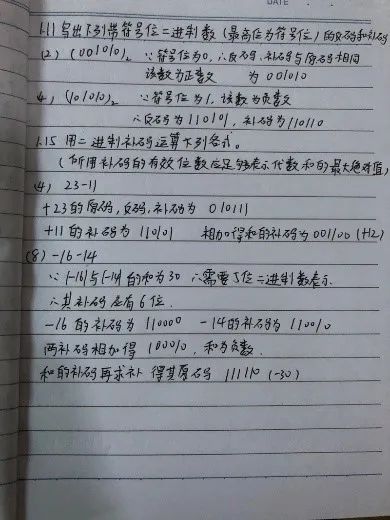 DATE
1.11 写出下列带符号位二进制数(最高位为符号位)的反码和补码
(2) (001010)₂ ∵符号位为0,∴反码、补码与原码相同
该数为正数 为001010
4) (101010)₂ ∵符号位为1,该数为负数
∴反码为110101,补码为110110
1.15 用二进制补码运算下列各式。
(所用补码的有效位数应足够表示代数和的最大绝对值)
(4) 23-11
+23的原码,反码,补码为 010111
+11的补码为 110101 相加得和的补码为001100 (+12)
(8) -16-14
∵|-16|与|-14|的和为30 ∴需要5位二进制数表示
∴其补码应有6位.
-16的补码为 110000 -14的补码为110010
两补码相加得 100010,和为负数.
和的补码再求补 得其原码 111110 (-30)